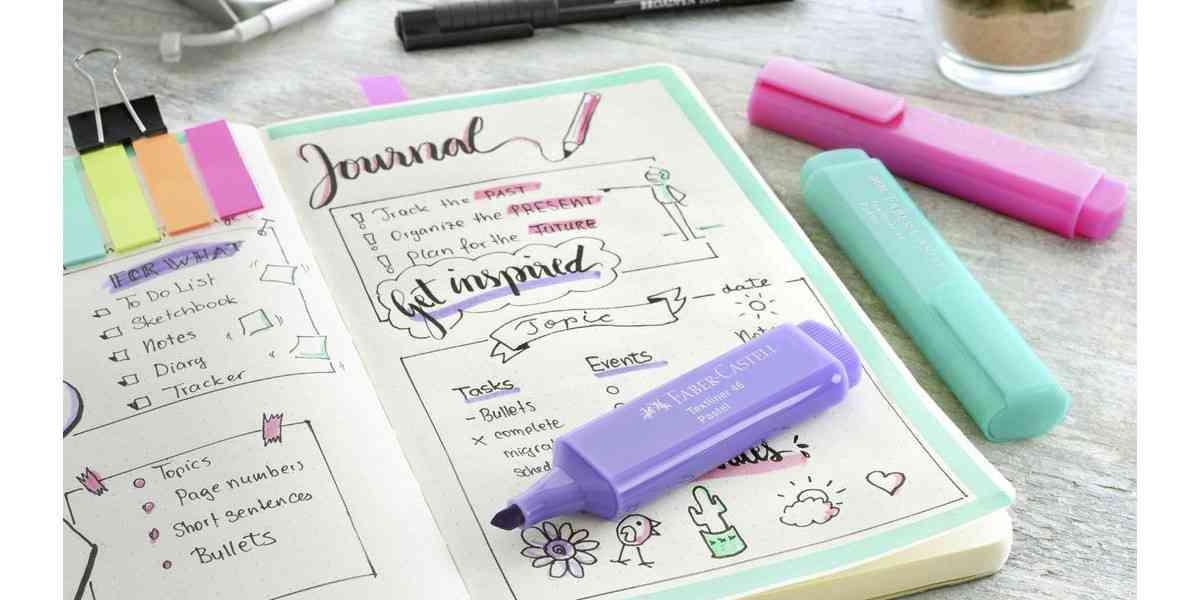 FOR WHAT
To Do List
Sketchbook
Notes
Diary
Tracker
Topics
Page numbers
Short sentences
Bullets
Journal
Track the PAST
Organize the PRESENT
Plan for the FUTURE
Get inspired
Topic
date
Tasks
Events
- Bullets
× complete
FABER-CASTELL
Textliner 46
Pastel
FABER-CASTELL